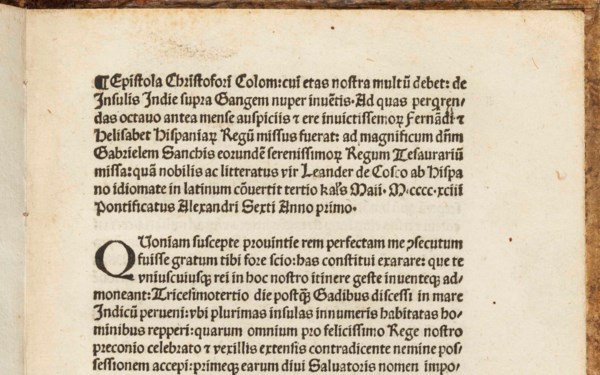 ¶ Epistola Christofori Colom: cui etas nostra multũ debet: de
Insulis Indie supra Gangem nuper inuẽtis. Ad quas perqren-
das octauo antea mense auspiciis ⁊ ere inuictissemoꝝ Fernãdi ⁊
Helisabet Hispaniaꝝ Regũ missus fuerat: ad magnificum dñm
Gabrielem Sanchis eorundẽ serenissimoꝝ Regum Tesaurariũ
missa: quã nobilis ac litteratus vir Leander de Cosco ab Hispa
no idiomate in latinum cõuertit tertio kaƚs Maii. M.cccc.xciii
Pontificatus Alexandri Sexti Anno primo.
QUoniam suscepte prouintie rem perfectam me ꝯsecutum
fuisse gratum tibi fore scio: has constitui exarare: que te
vniuscuiusqꝫ rei in hoc nostro itinere geste inuenteqꝫ ad-
moneant: Tricesimotertio die postꝗ̃ Gadibus discessi in mare
Indicũ perueni: vbi plurimas insulas innumeris habitatas ho-
minibus repperi: quarum omnium pro felicissimo Rege nostro
preconio celebrato ⁊ vexillis extensis contradicente nemine pos-
sessionem accepi: primeqꝫ earum diui Saluatoris nomen impo-